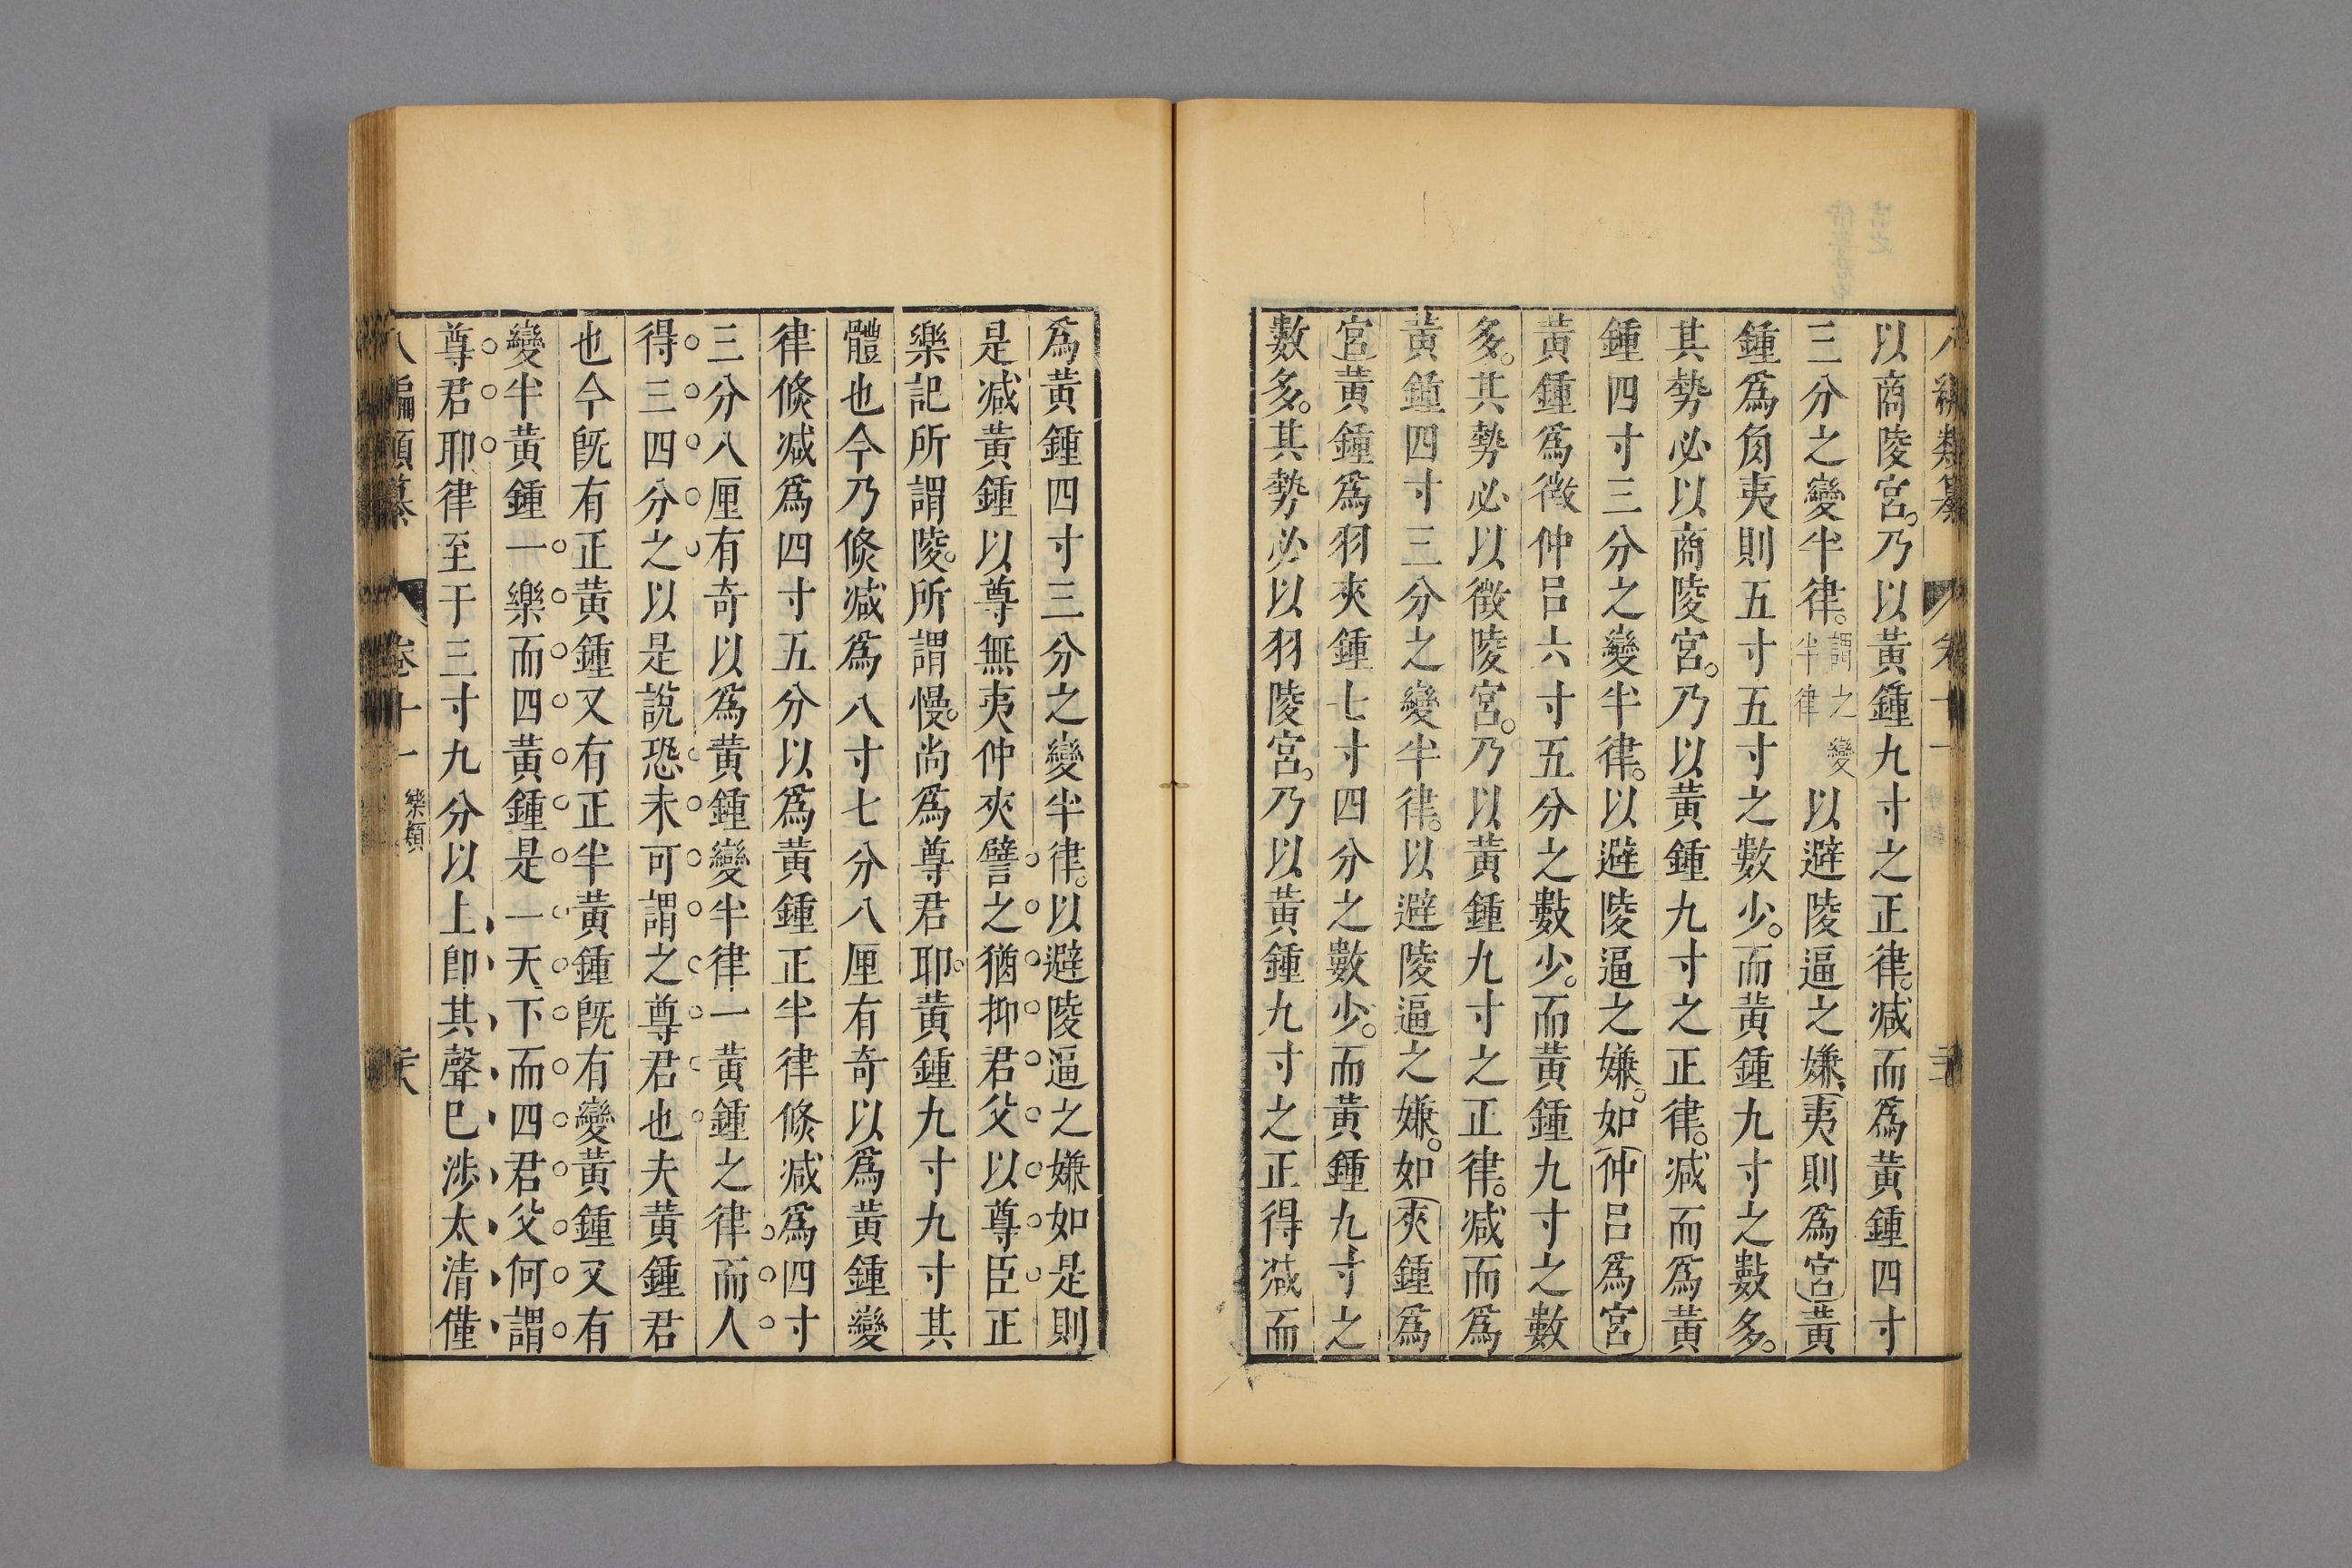 以商陵宮。乃以黃鍾九寸之正律。减而爲黃鍾四寸
三分之變半律。謂之變半律以避陵逼之嫌、夷則爲宮黃
鍾爲角夷則五寸五寸之數少。而黃鍾九寸之數多。
其勢必以商陵宮。乃以黃鍾九寸之正律。减而爲黃
鍾四寸三分之變半律。以避陵逼之嫌。如仲呂爲宮
黃鍾爲徵仲呂六寸五分之數少。而黃鍾九寸之數
多。其勢必以徵陵宮。乃以黃鍾九寸之正律。减而爲
黃鍾四寸三分之變半律。以避陵逼之嫌。如夾鍾爲
宮黃鍾爲羽夾鍾七寸四分之數少。而黃鍾九寸之
數多。其勢必以羽陵宮。乃以黃鍾九寸之正得减而
爲黃鍾四寸三分之變半律。以避陵逼之嫌如是則
是减黃鍾以尊無夷仲夾譬之猶抑君父以尊臣正
樂記所謂陵。所謂慢。尚爲尊君耶。黃鍾九寸九寸其
體也今乃倐减爲八寸七分八厘有奇以爲黃鍾變
律倐减爲四寸五分以爲黃鍾正半律倐减爲四寸
三分八厘有奇以爲黃鍾變半律一黃鍾之律而人
得三四分之以是說恐未可謂之尊君也夫黃鍾君
也今旣有正黃鍾又有正半黃鍾旣有變黃鍾又有
變半黃鍾一樂而四黃鍾是一天下而四君父何謂
尊君耶律至于三寸九分以上卽其聲巳涉太清僅
八編類纂 卷十一 樂類 六